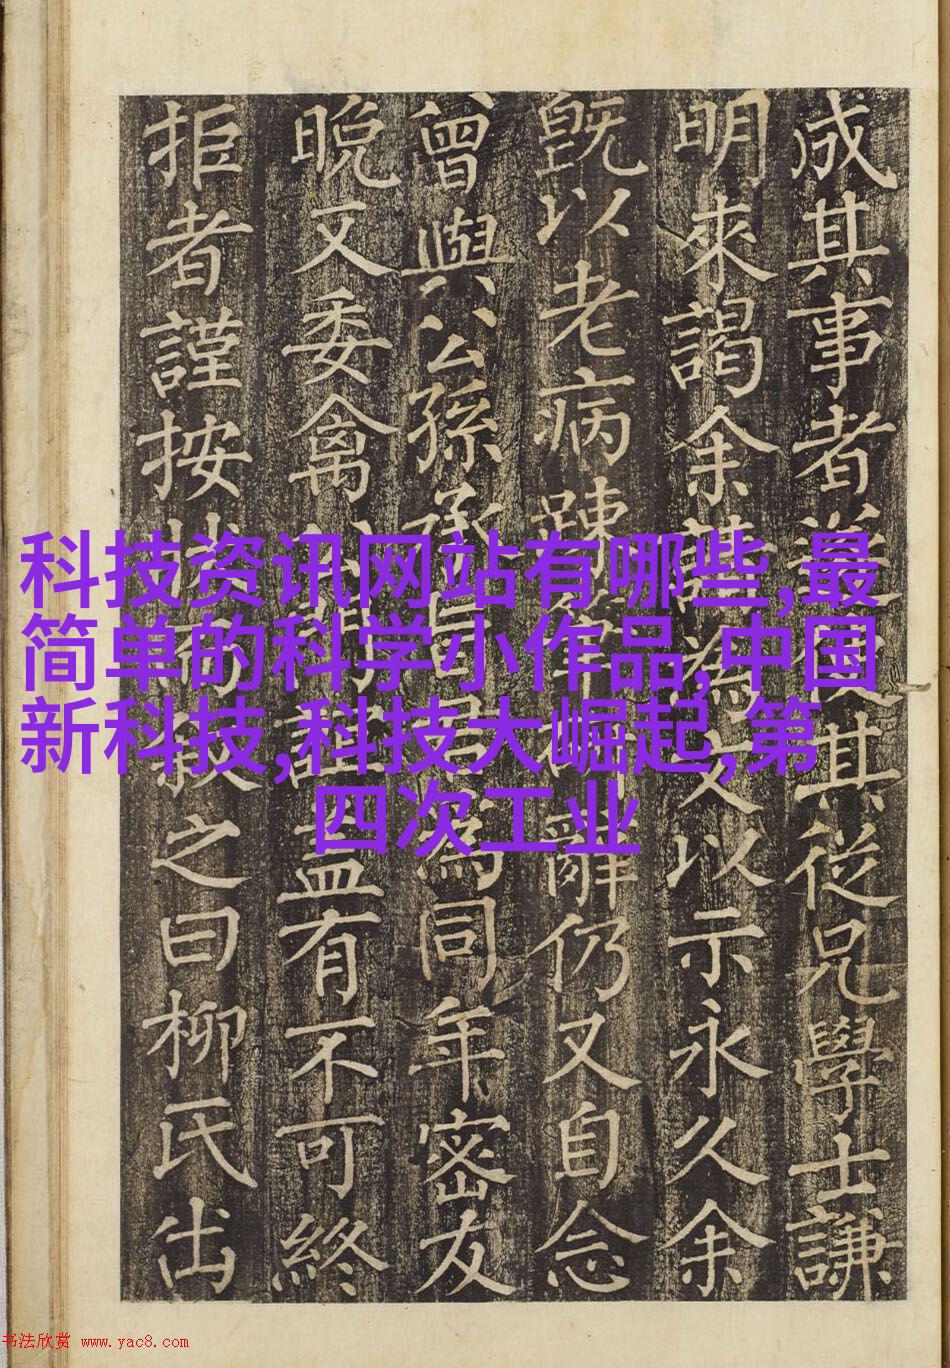 成其事者其從兄學士謙
明來謁余請為文以示永久余
既以老病踈辭仍又自念
曾與公孫承旨為同年密友
晚又委禽有不可終
拒者謹按之曰柳氏出
科技资讯网站有哪些,最
简单的科学小作品,中国
新科技,科技大崛起,第
四次工业
书法欣赏 www.yac8.com